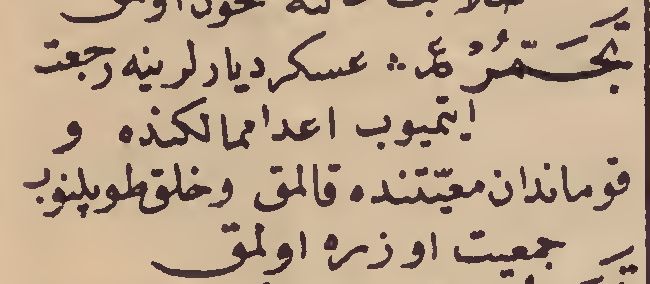 تَجَمُّرٌ ع : عسکر دیارلرینه رجعت
ایتمیوب اعدا ممالکنده و
قوماندان معیّتنده قالمق وخلق طوپلنوب
جمعیت اوزره اولمق